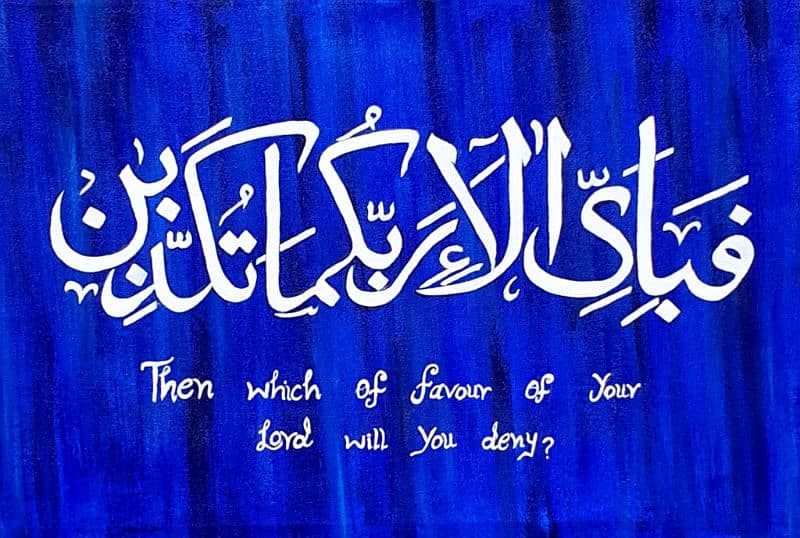 فَبِاَيِّ اٰلَآءِ رَبِّكُمَا تُكَذِّبٰنِ
Then which of favour of your
Lord will you deny?